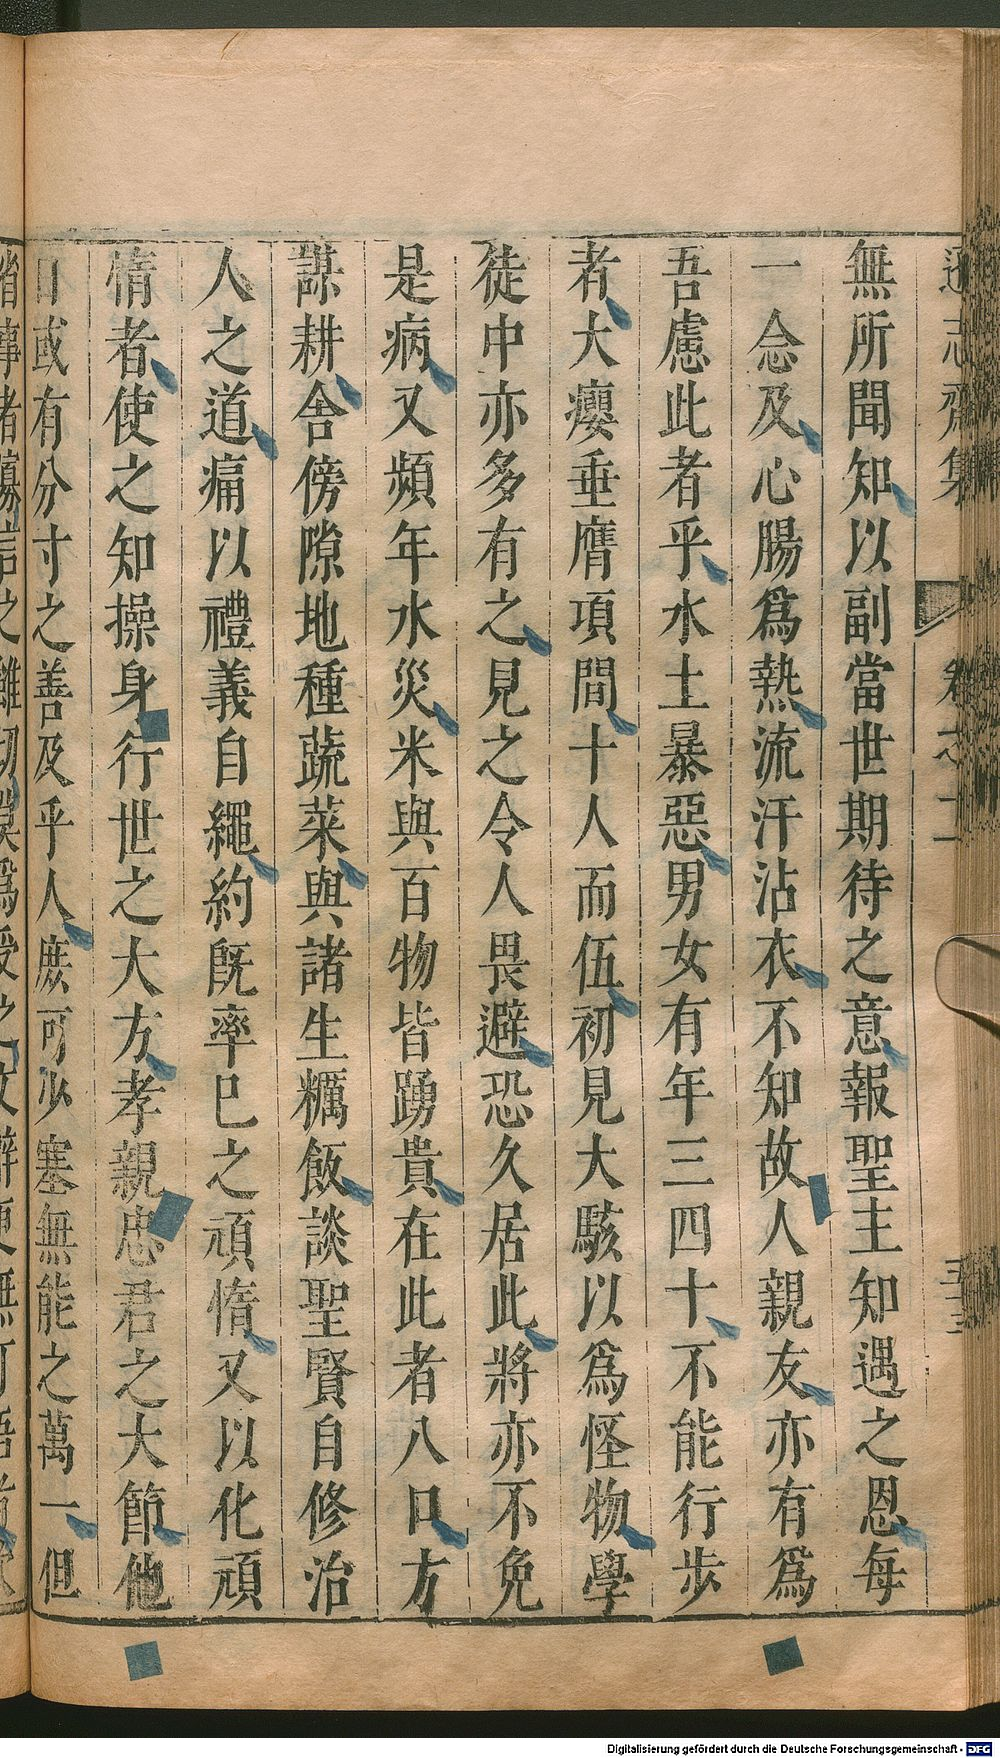 無所聞知以副當世期待之意報聖主知遇之恩每
一念及心腸爲熱流汗沾衣不知故人親友亦有爲
吾慮此者乎水土暴惡男女有年三四十不能行步
者大癭垂膺項間十人而伍初見大駭以爲怪物學
徒中亦多有之見之令人畏避恐久居此將亦不免
是病又頻年水災米與百物皆踴貴在此者八口方
謀耕舍傍隙地種蔬菜與諸生糲飯談聖賢自修治
人之道痛以禮義自繩約旣率已之頑惰又以化頑
惰者使之知操身行世之大方孝親忠君之大節他
日或有分寸之善及乎人庶可少塞無能之萬一但
卷之十一
Digitalisierung gefördert durch die Deutsche Forschungsgemeinschaft - DFG